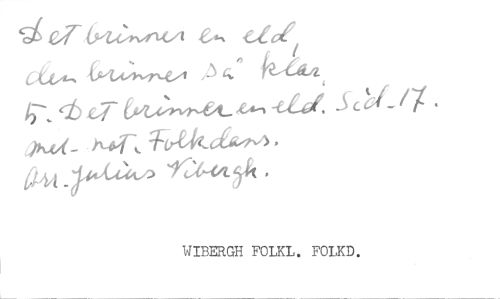 Det brinner en eld,
den brinner så klar,
5. Det brinner en eld. Sid. 17.
mel- not. Folkdans.
Arr. Julius Vibergh.
WIBERGH FOLKL. FOLKD.